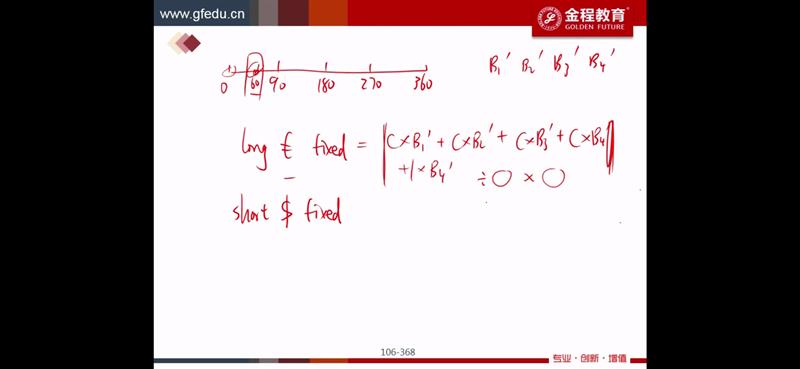 www.gfedu.cn
金程教育
GOLDEN FUTURE
B₁' B₂' B₃' B₄'
0 60 90 180 270 360
long € fixed = C×B₁' + C×B₂' + C×B₃' + C×B₄
+1×B₄' ÷○ ×○
short $ fixed
106-368
专业·创新·增值